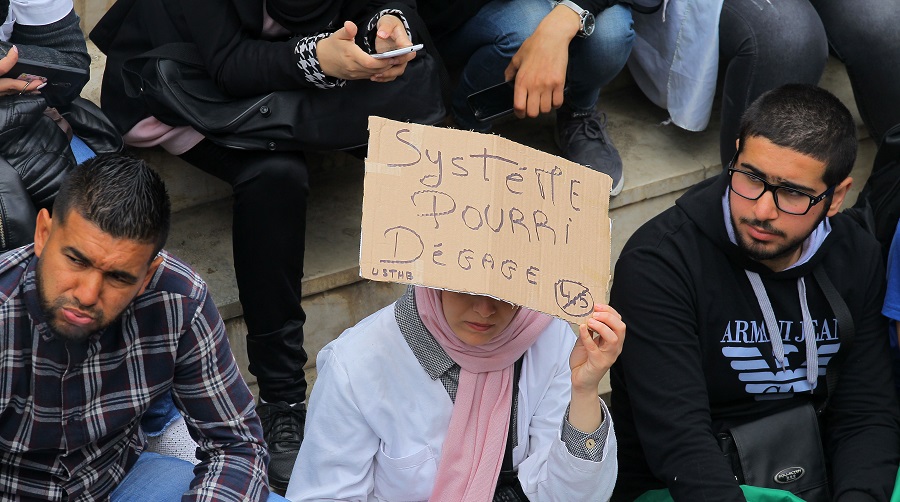 Système
Pourri
Dégage
USTHB
4/5
ARMANI JEANS